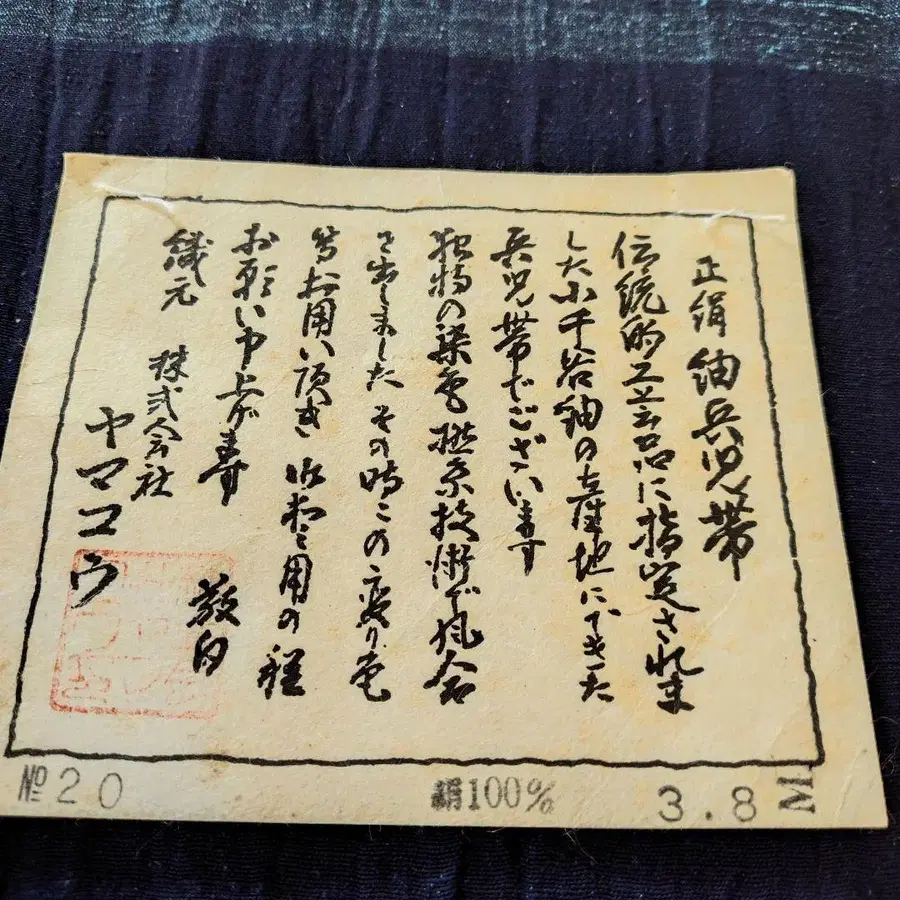 正絹 紬兵児帯
伝統的工芸品に指定されま
した小千谷紬の産地にできた
兵児帯でございます
独特の染色撚糸技術で風合
を出しました その時この変り色
等お用い頂き 御愛用の程
お願い申上げ寿
敬白
織元 株式会社
ヤマコウ
№20
絹100%
3.8M